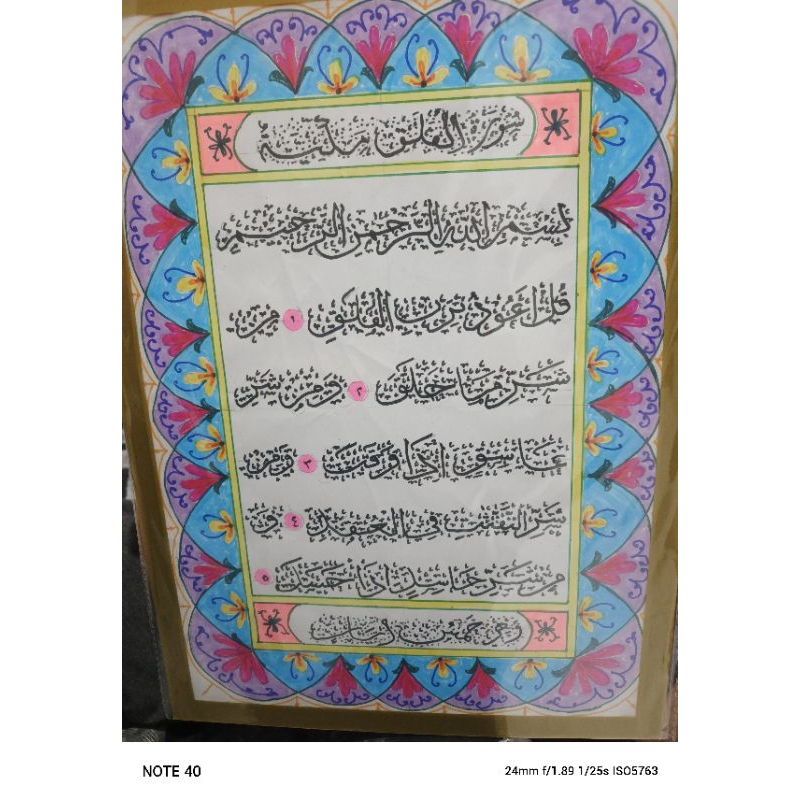 سورة الفلق مكية
بسم الله الرحمن الرحيم
قل اعوذ برب الفلق ١ من
شر ما خلق ٢ ومن شر
غاسق اذا وقب ٣ ومن
شر النفثت في العقد ٤ و
من شر حاسد اذا حسد ٥
وهي خمس ايات
NOTE 40
24mm f/1.89 1/25s ISO5763